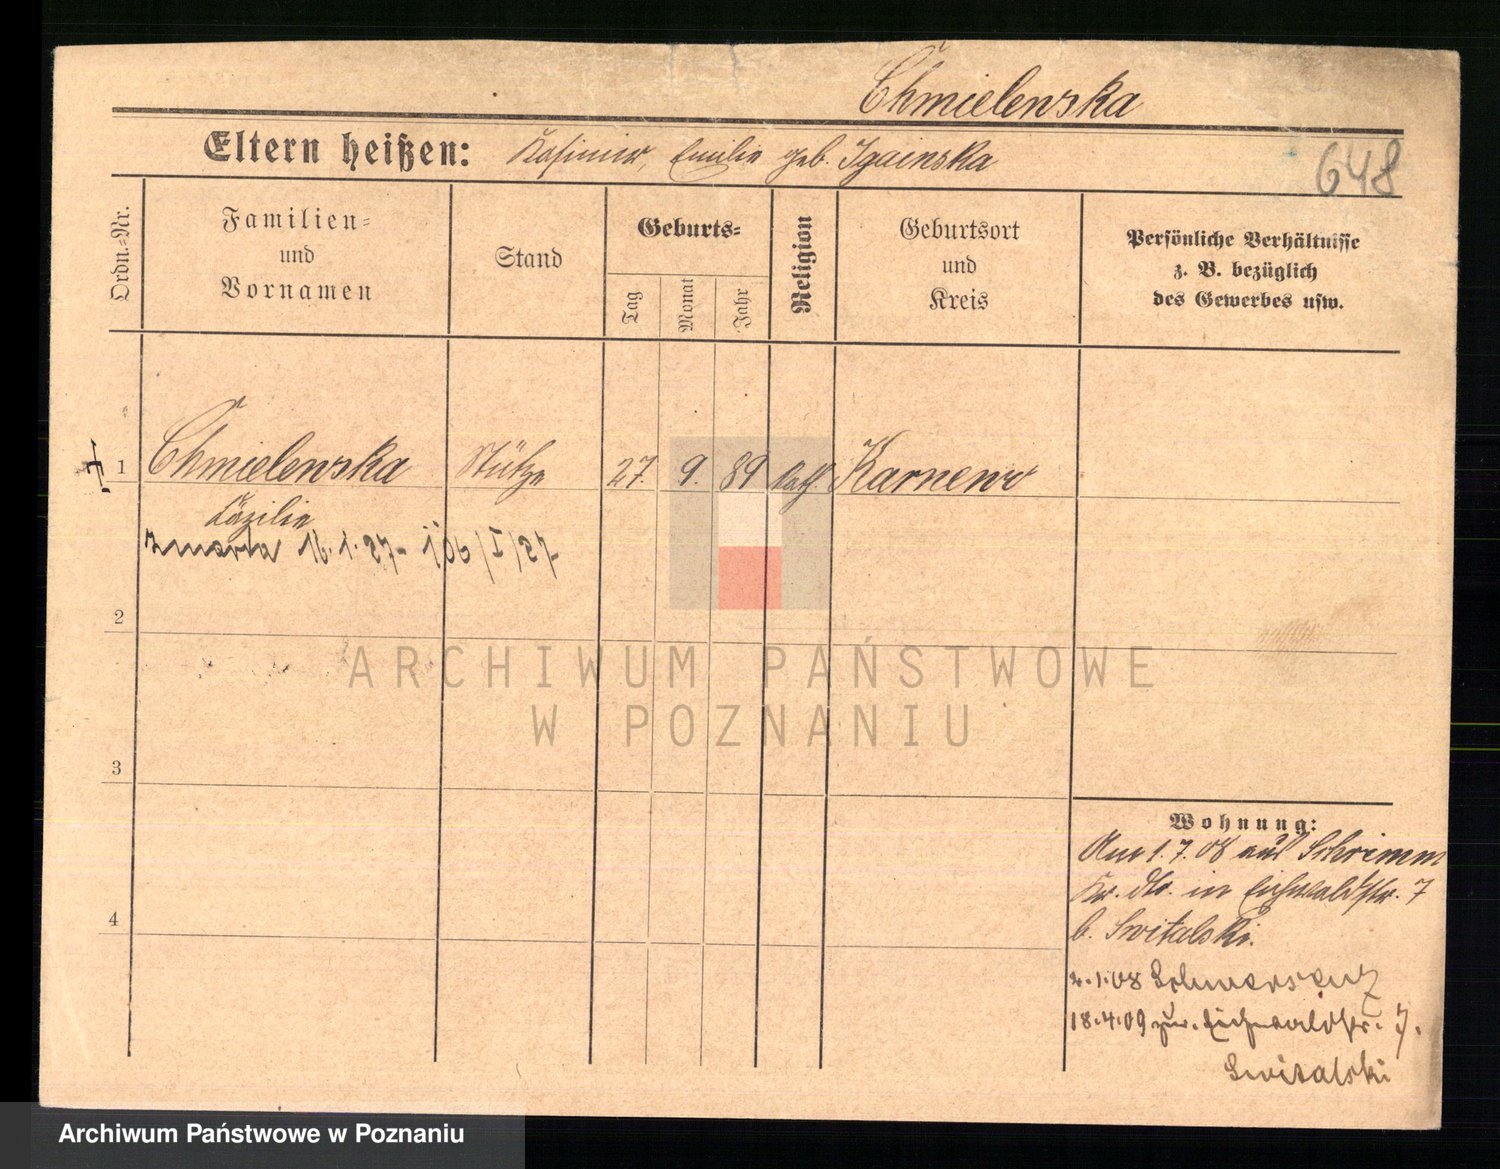 Chmielewska
Eltern heißen: Kasimir, Emilie geb. Igainska
648
Ordn.-Nr.
Familien-
und
Vornamen
Stand
Geburts-
Tag
Monat
Jahr
Religion
Geburtsort
und
Kreis
Persönliche Verhältnisse
z. B. bezüglich
des Gewerbes usw.
1 Chmielewska Stütze 27. 9. 89 kath. Karnewo
Cäzilie
zmarła 16.1.37
2
ARCHIWUM PAŃSTWOWE
W POZNANIU
3
4
Wohnung:
Am 1.7.08 aus Schrimm
Kr. dto. in Eichwaldstr. 7
b. Switalski.
18.4.09 zur. Eichwaldstr. 7.
Switalski
Archiwum Państwowe w Poznaniu